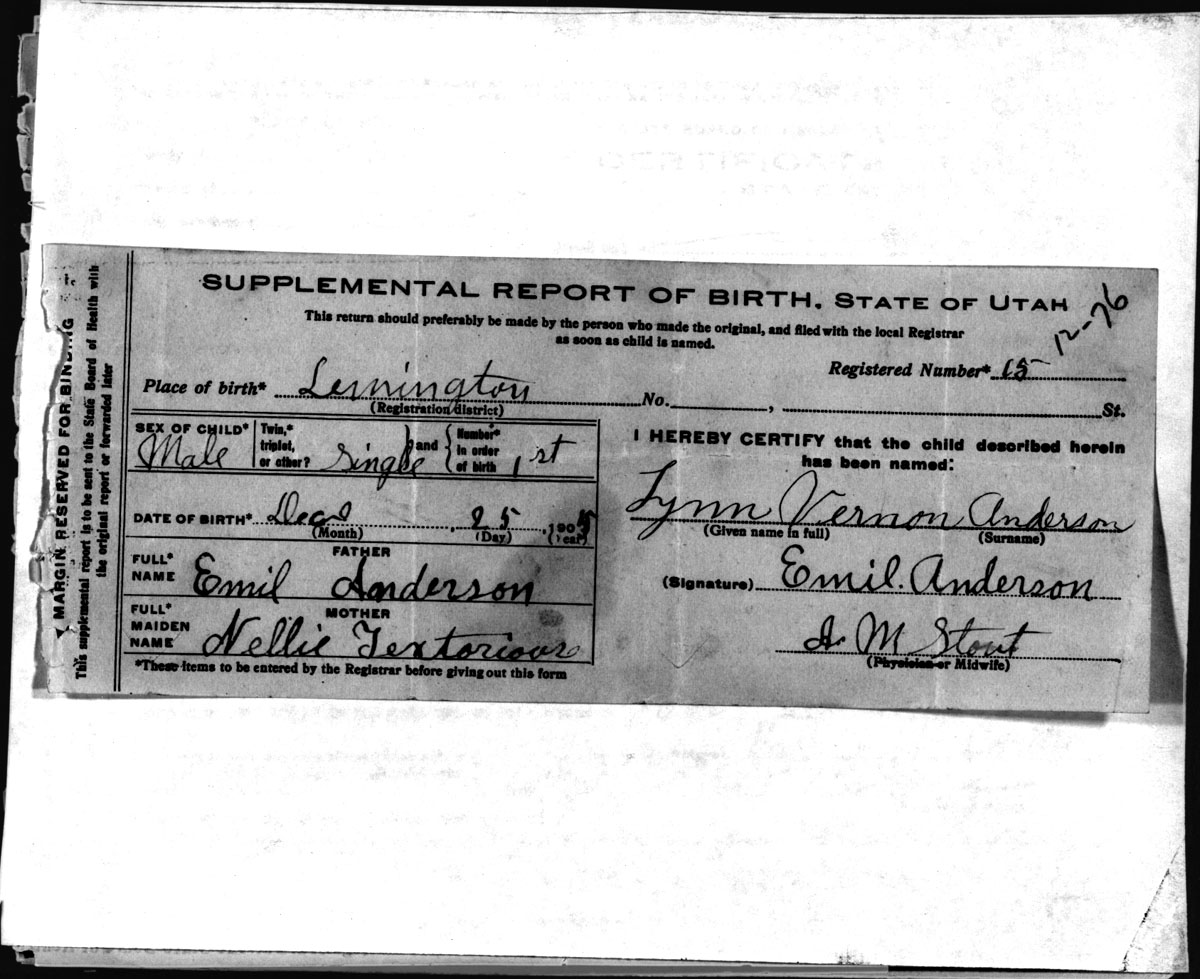 SUPPLEMENTAL REPORT OF BIRTH. STATE OF UTAH
12-26
This return should preferably be made by the person who made the original, and filed with the local Registrar
as soon as child is named.
Registered Number* 15
Place of birth* Lemington No. , St.
(Registration district)
SEX OF CHILD* Male Twin,* triplet, or other? Single and Number* in order of birth 1st
DATE OF BIRTH* Dec 25, 190
(Month) (Day) (Year)
FATHER
FULL* NAME Emil Anderson
MOTHER
FULL* MAIDEN NAME Nellie
*These items to be entered by the Registrar before giving out this form
I HEREBY CERTIFY that the child described herein
has been named:
Lynn Vernon Anderson
(Given name in full) (Surname)
(Signature) Emil. Anderson
M Stout
(Physician or Midwife)
MARGIN RESERVED FOR BINDING
This supplemental report is to be sent to the State Board of Health with
the original report or forwarded later